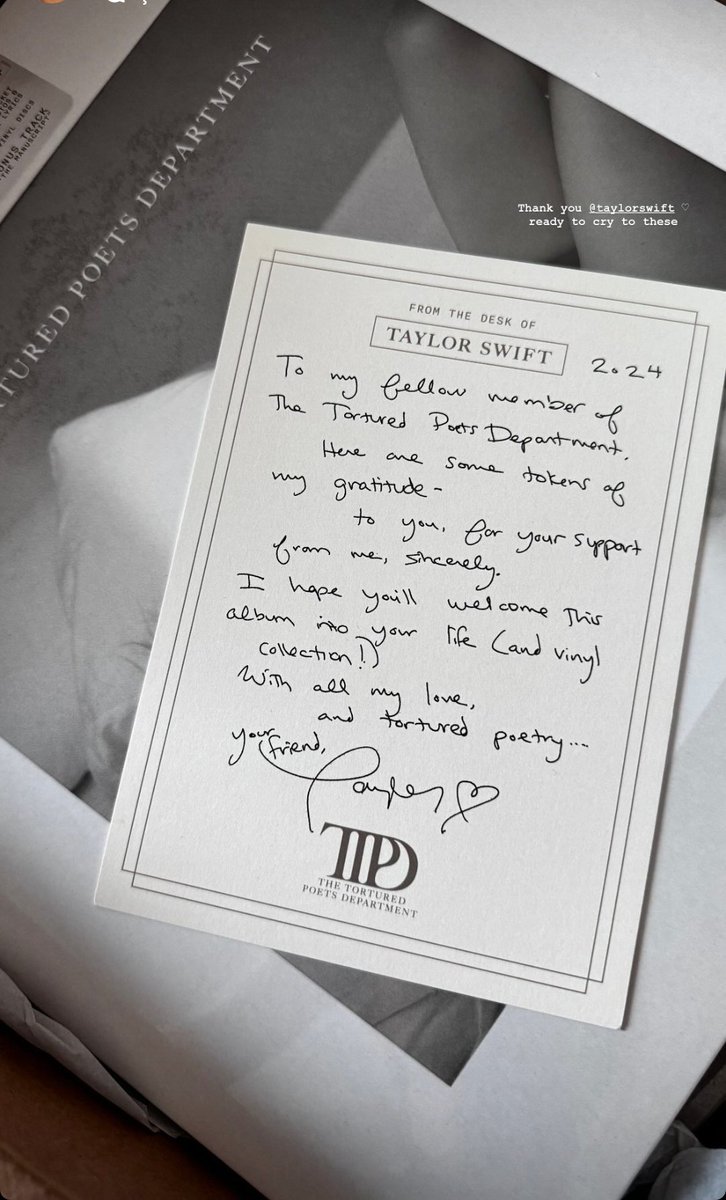 TURED POETS DEPARTMENT
VINYL DISCS
BONUS TRACK
"THE MANUSCRIPT"
Thank you @taylorswift ♡
ready to cry to these
FROM THE DESK OF
TAYLOR SWIFT
2024
To my fellow member of
The Tortured Poets Department.
Here are some tokens of
my gratitude -
to you, for your support
from me, sincerely.
I hope you'll welcome this
album into your life (and vinyl
collection!)
With all my love,
and tortured poetry...
your friend,
Taylor ♡
TTPD
THE TORTURED
POETS DEPARTMENT